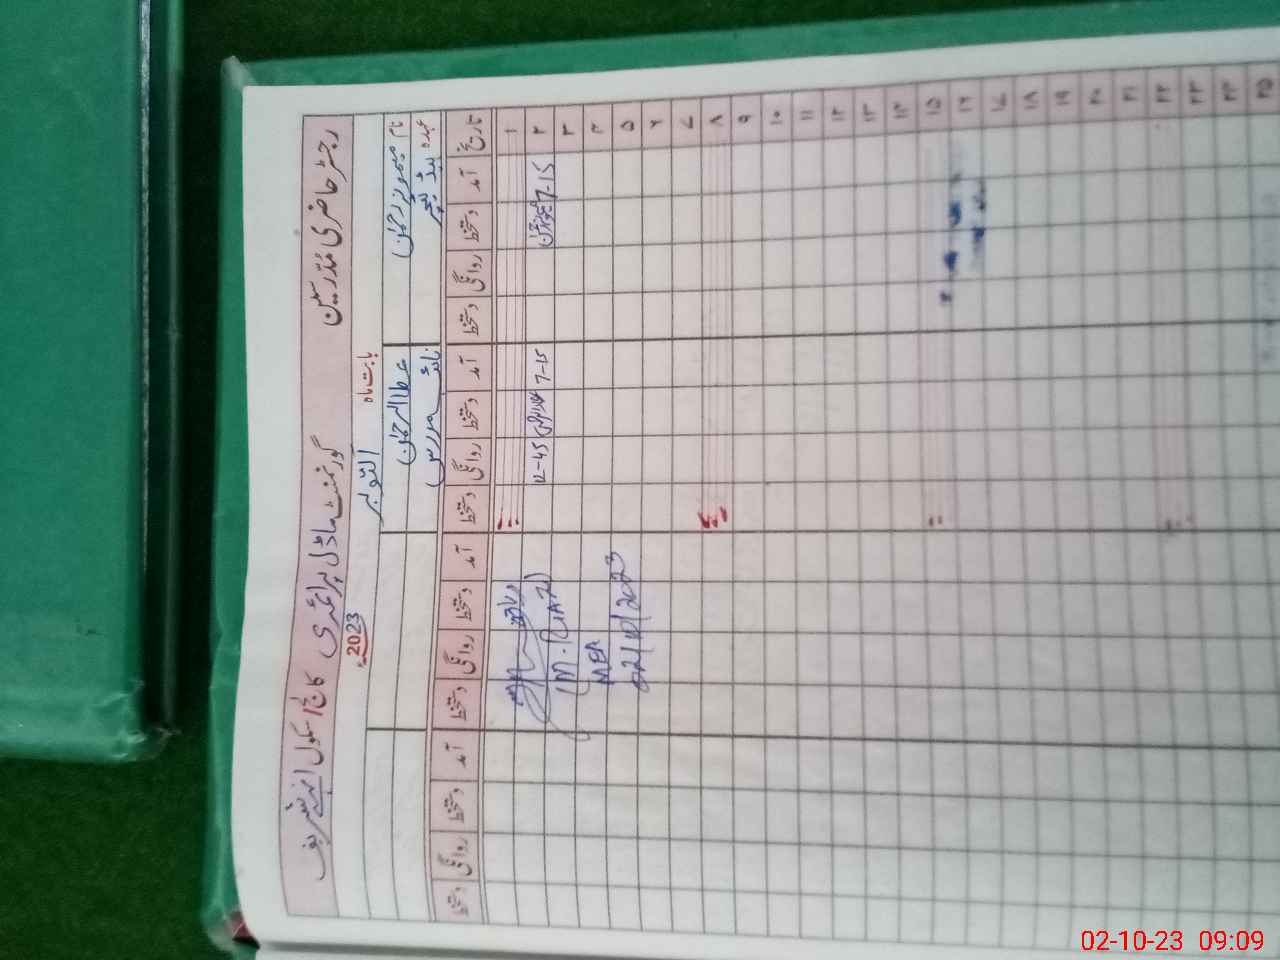 رجسٹر حاضری مدرسین گورنمنٹ ماڈل پرائمری کالج اسکول
بابت ماہ اکتوبر 2023
نام میمونہ رحمٰن عطاالرحمٰن
عہدہ ہیڈ ٹیچر نائب مدرس
تاریخ آمد دستخط روانگی دستخط آمد دستخط روانگی دستخط آمد دستخط روانگی دستخط آمد دستخط روانگی دستخط
۱
۲ 7-15 7-15 12-45
۳ (M. RIAZ)
۴ MEA
۵ 02/10/2023
۶
۷
۸
۹
۱۰
۱۱
۱۲
۱۳
۱۴
۱۵
۱۶
۱۷
۱۸
۱۹
۲۰
۲۱
۲۲
۲۳
۲۴
۲۵
02-10-23 09:09